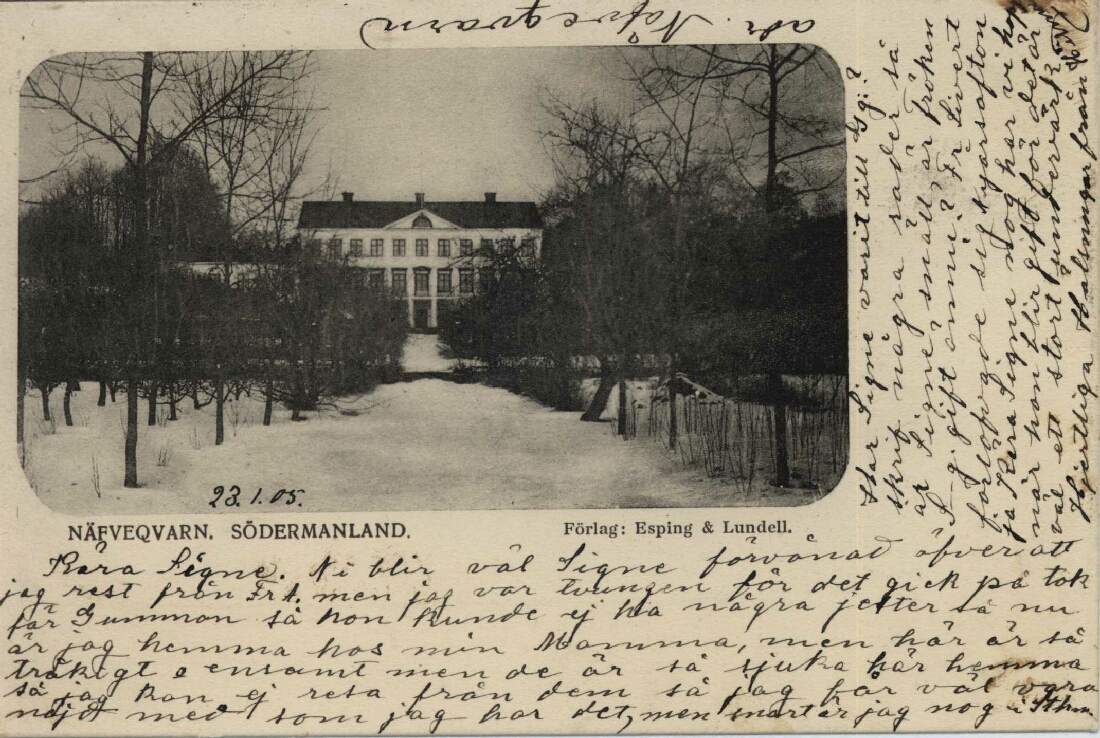 adr. Näfveqvarn
23.1.05.
NÄFVEQVARN. SÖDERMANLAND.
Förlag: Esping & Lundell.
Kära Signe. Ni blir väl Signe förvånad öfver att
jag rest från Fr A. men jag var tvungen för det gick på tok
får Gumman så hon kunde ej ha några jester så nu
är jag hemma hos min Mamma, men här är så
tråkigt o ensamt men de är så sjuka här hemma
så jag kan ej resa från dem så jag får väl vara
nöjd med som jag har det, men snart är jag nog i Sthm
Har Signe varit till Gg:?
skrif några rader så
är Signe snäll är fröken
G gift ännu? Fr Sivert
förlofvade sig nyårsafton
ja Kära Signe nog har vi hopp
när hon blir gift för det är
väl ett stort undervärk
Hjertliga Hälsningar från